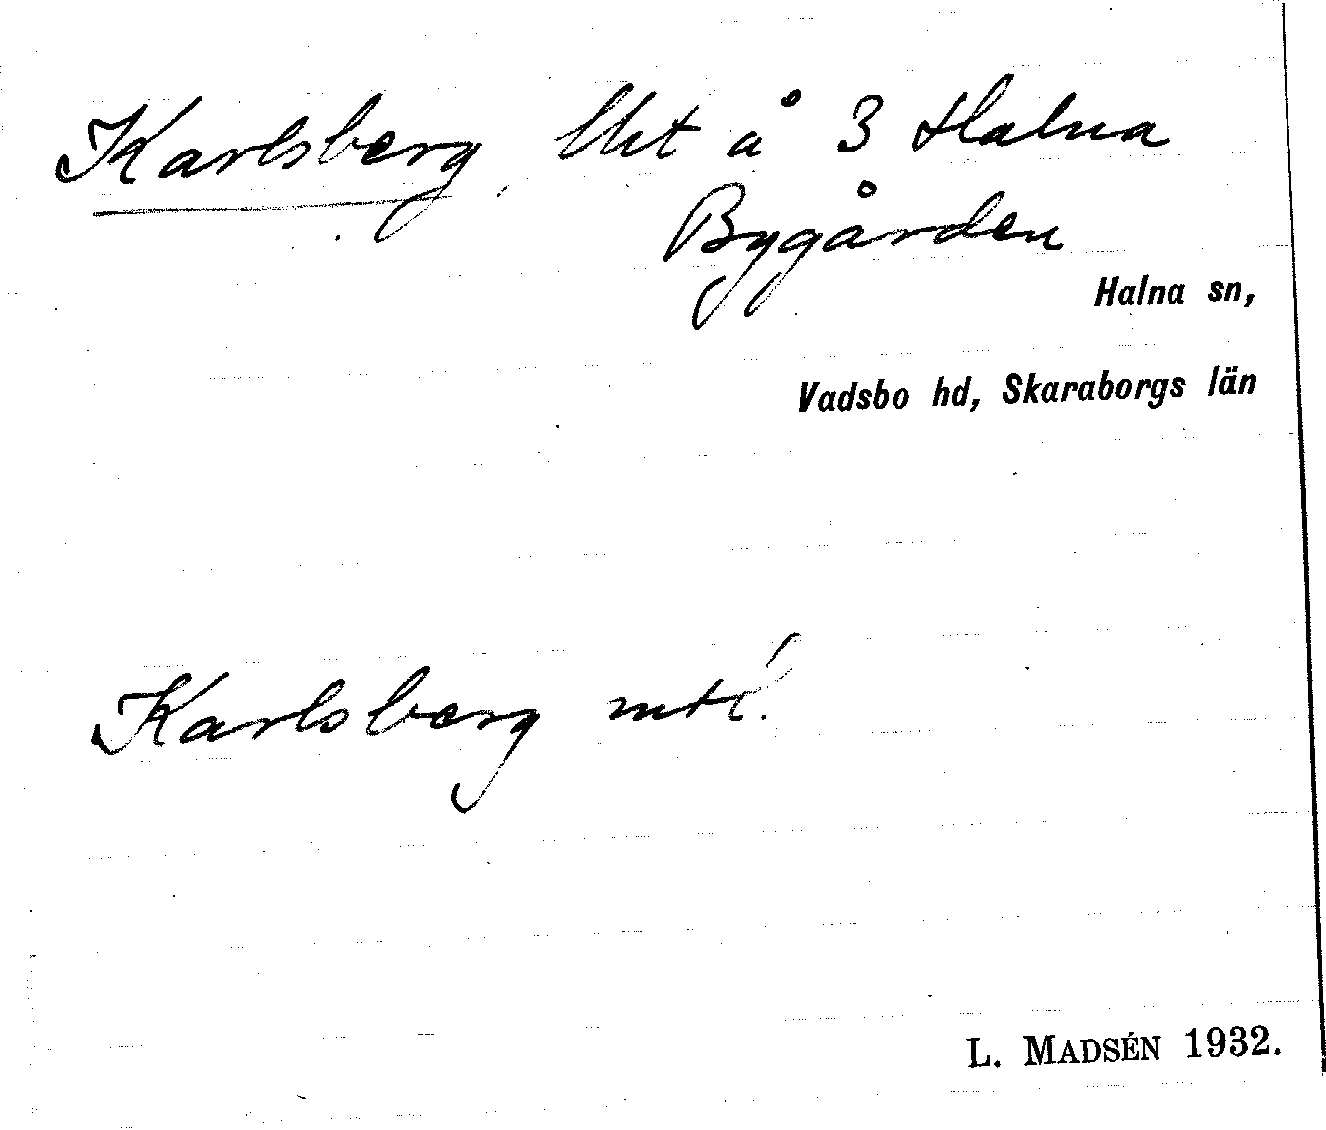 Karlsberg, lht å 3 Halna
Bygården
Halna sn,
Vadsbo hd, Skaraborgs län
Karlsberg mtl.
L. MADSÉN 1932.